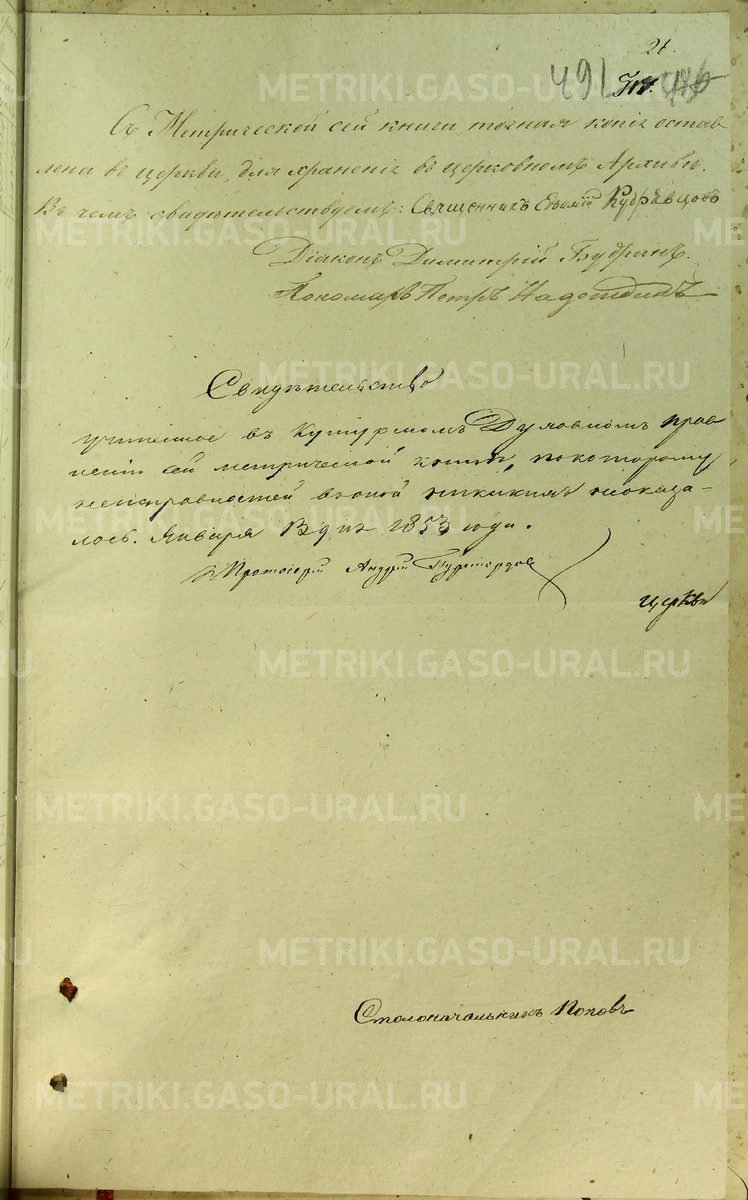 21.
491
Съ Метрической сей книги точная копіе остав
лена въ церкви, для храненіе въ церковномъ Архивѣ.
Въ чемъ свидѣтельствуемъ: Священникъ Евѳимій Кудрявцовъ
Діаконъ Димитрій Будринъ.
Пономарь Петръ Надеждинъ
Свидѣтельство
учиненное въ Духовномъ прав
леніи сей метрической книги, по которому
неисправностей въ оной никакихъ не оказа-
лось. Января дня 1853 года.
Протоіерей Андрей
церкви
Столоначальникъ Поповъ
METRIKI.GASO-URAL.RU